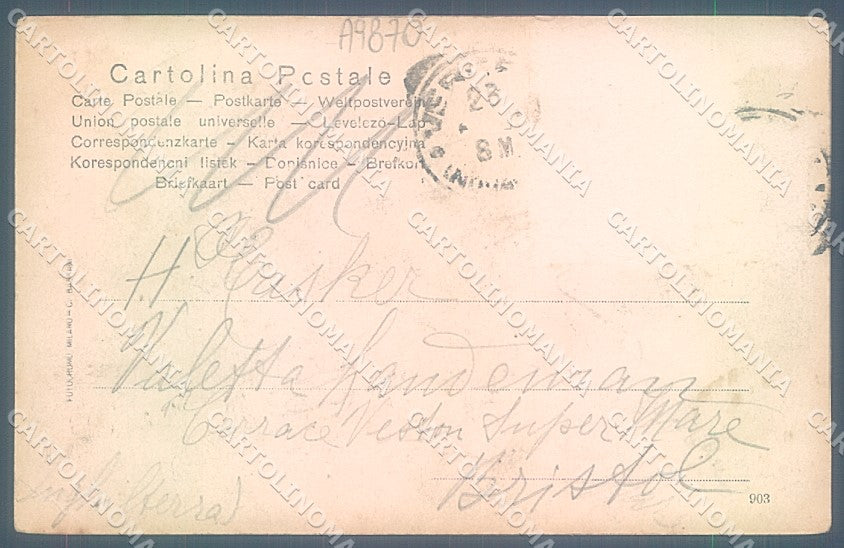 A9870
Cartolina Postale
Carte Postale — Postkarte — Weltpostverein
Union postale universelle — Levelező-Lap
Correspondenzkarte — Karta korespondencyjna
Korespondencni listek — Dopisnice — Brefkort
Briefkaart — Post card
8 M
H. Casker
Valetta Landemann
Terrace Weston Super Mare
Bristol
903
CARTOLINOMANIA